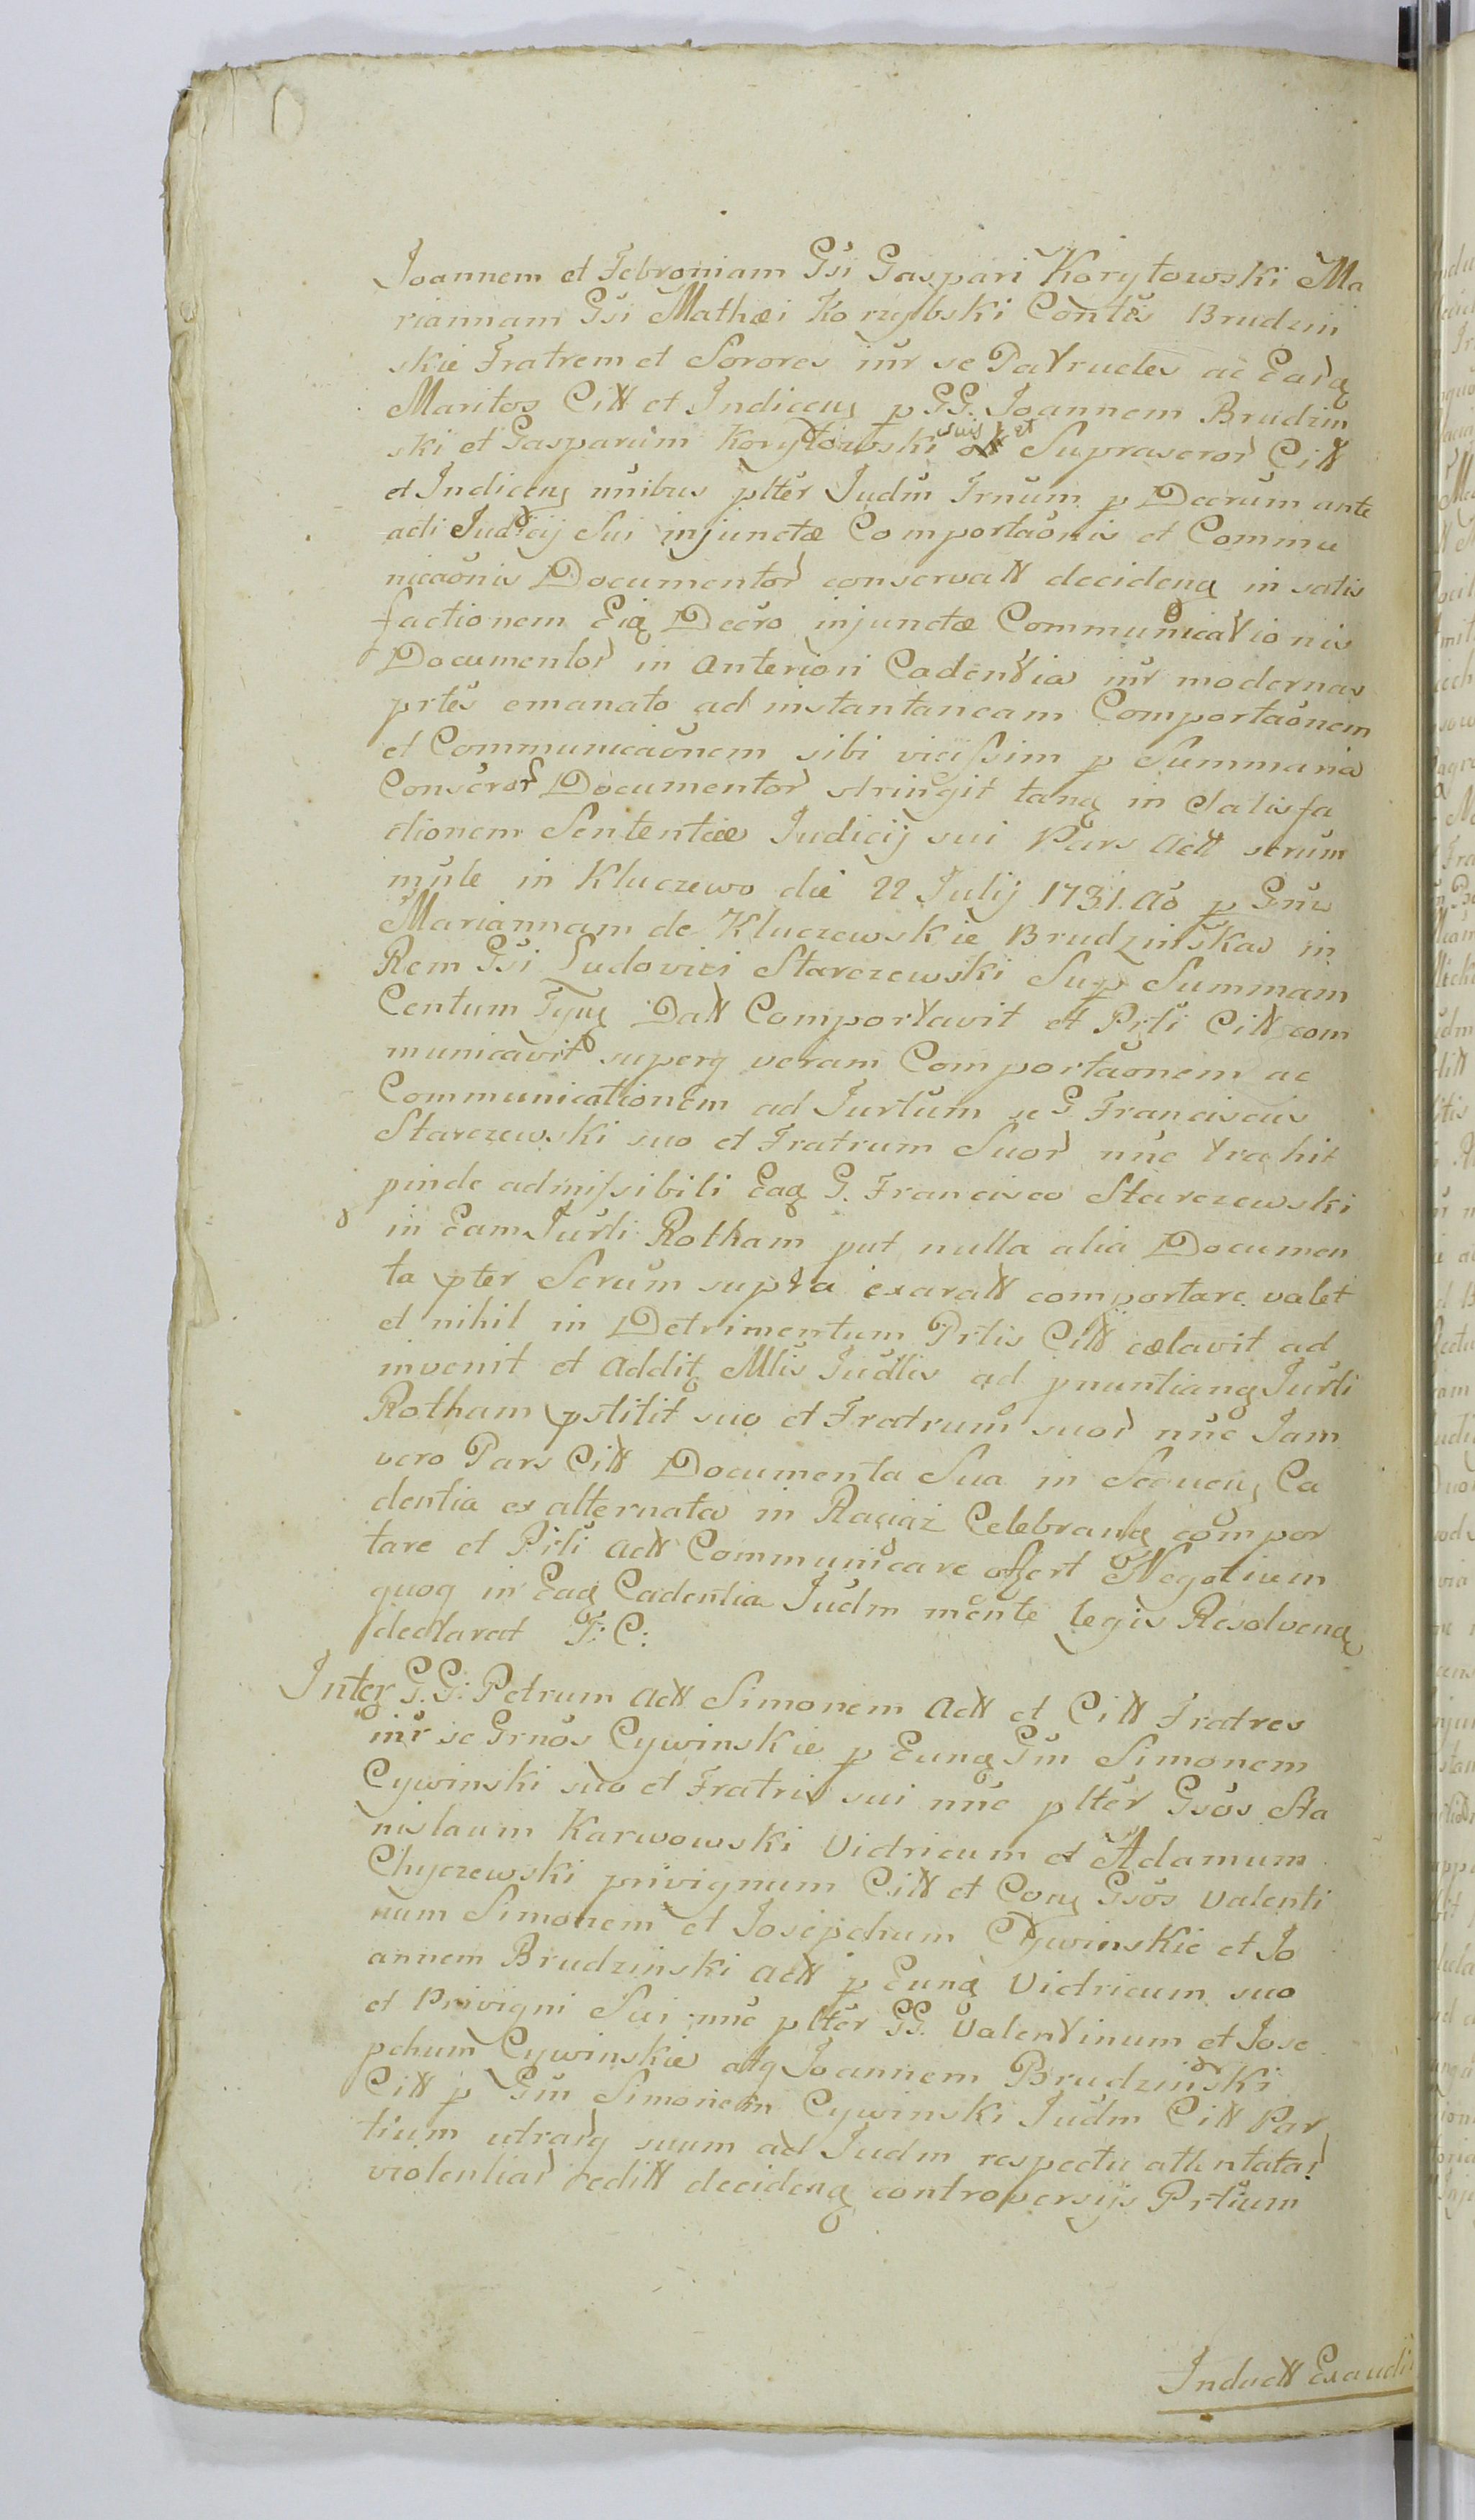 Joannem et Febroniam Gsi Gaspari Korytowski Ma
riannam Gsi Mathæi Korzybski Contes Brudzin
skie Fratrem et Sorores inr se Patrueles ac Earq
Maritos Citt et Indiceng p GG. Joannem Brudzin
ski et Gasparum Korytowski suis et Suprascror Citt
et Indiceng nnibus plter Judm Trnum p Decrum ante
acti Judicij Sui injunctæ Comportaonis et Commu
nicaonis Documentor conservatt decidenq in satis
factionem Eiq Decro injunctæ Communicationis
Documentor in anteriori Cadentia inr modernas
prtes emanato ad instantaneam Comportaonem
et Communicaonem sibi vicissim p Summaria
Conscror Documentor stringit tanq in Satisfa
ctionem Sententiæ Judicij sui Pars Actt scrum
mnle in Kluczewo die 22 Julij 1731. Ao p Gnw
Mariannam de Kluczewskie Brudzinskas in
Rem Gsi Ludovici Starczewski Sup Summam
Centum Tynq Datt Comportavit et Prti Citt com
municavit superq veram Comportaonem ac
Communicationem ad Jurtum se G Franciscus
Starczewski suo et Fratrum Suor nnc trahit
pinde admissibili Eaq G. Francisco Starczewski
in Eam Jurti Rotham put nulla alia Documen
ta pter Scrum supra exaratt comportare valet
et nihil in Detrimentum Prtis Citt cœlavit ad
invenit et addit Mlis Judlis ad pnuntianq Jurti
Rotham pstitit suo et Fratrum suor nnc Jam
vero Pars Citt Documenta Sua in Sequeng Ca
dentia ex alternata in Raciąż Celebranq compor
tare et Prti Actt Communicare offert Negotium
quoq in Eaq Cadentia Judm mente legis Resolvenq
declarat F: C:
Inter G. G: Petrum Actt Simonem Actt et Citt Fratres
inr se Grnos Cywinskie p Eunq Gm Simonem
Cywinski suo et Fratris sui nnc plter Gsos Sta
nislaum Karwowski Vidricum et Adamum
Chyczewski privignum Citt et Conq Gsos Valenti
num Simonem et Josepchum Cywinskie et Jo
annem Brudzinski Actt p Eunq Vidricum suo
et Privigni Sui nnc plter GG. Valentinum et Jose
pchum Cywinskie atq Joannem Brudzinski
Citt p Gm Simonem Cywinski Judm Citt Par
tium utrarq suum ad Judm respectu attentatar
violentiar editt decidenq controversijs Prtium
Inductt Exaudi